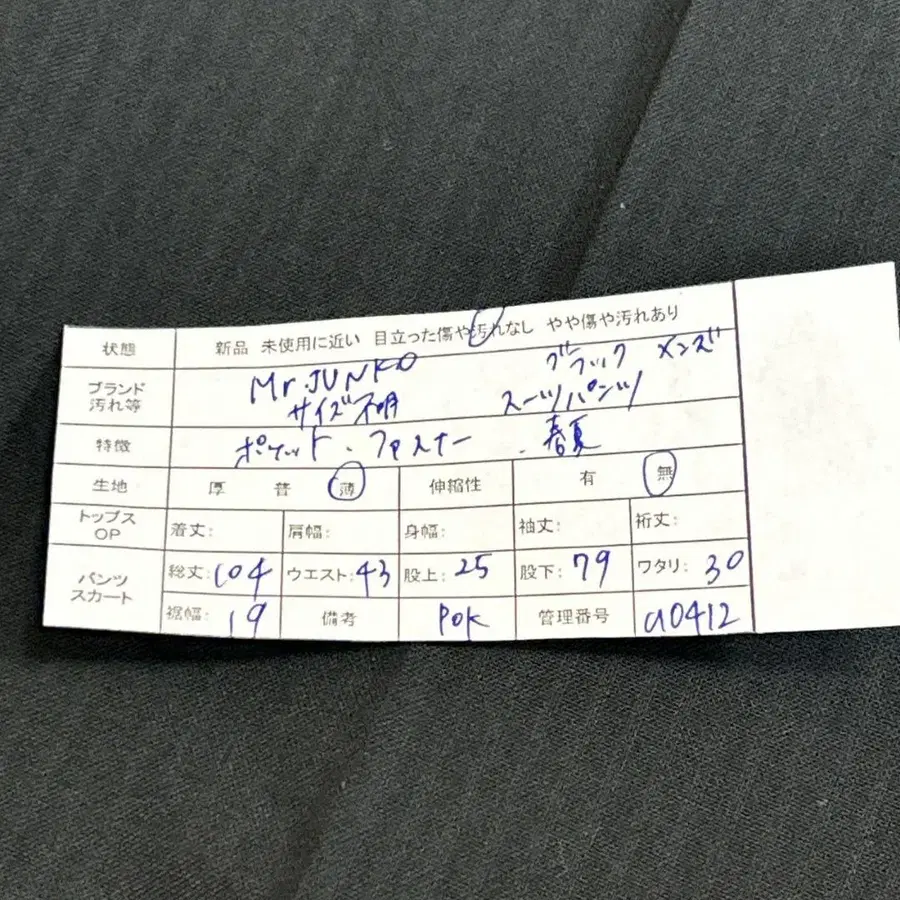 状態 新品 未使用に近い 目立った傷や汚れなし やや傷や汚れあり
ブランド 汚れ等 Mr.JUNKO ブラック メンズ
サイズ不明 スーツパンツ
特徴 ポケット・ファスナー・春夏
生地 厚 普 薄 伸縮性 有 無
トップス OP 着丈: 肩幅: 身幅: 袖丈: 裄丈:
パンツ スカート 総丈:104 ウエスト:43 股上:25 股下:79 ワタリ:30
裾幅:19 備考 POK 管理番号 a0412